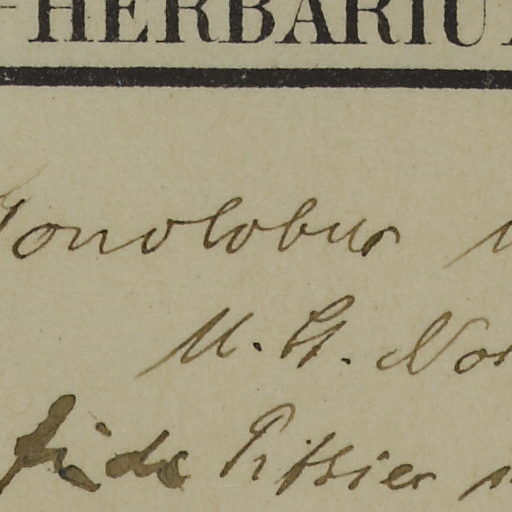 HERBARIU
Gonolobus
M. G. No
fide Pittier